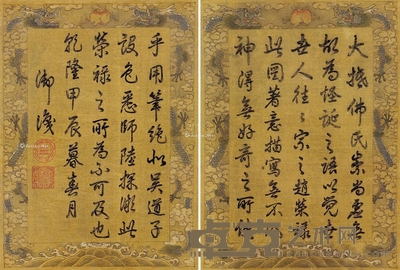 大抵佛氏崇尚虛無
故為怪誕之語以覺世
世人往往宗之趙榮祿
此圖著意描寫無不
神得無好奇之所致
乎用筆絕似吳道子
設色悉師陸探微此
榮祿之所為不可及也
乾隆甲辰暮春月
御識